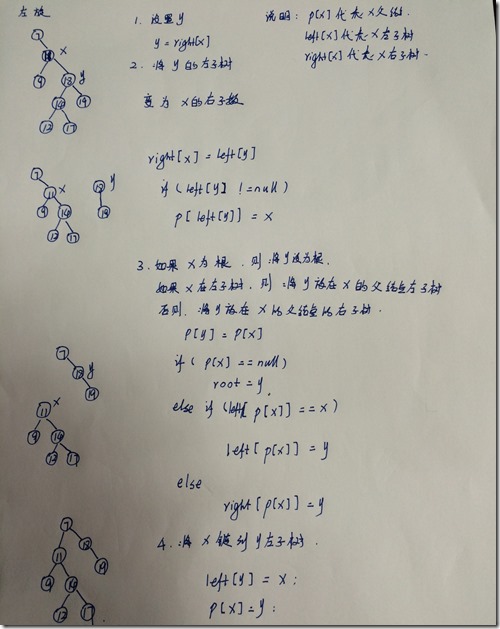 左旋
说明: p[x]代表x父结点.
left[x]代表x左子树
right[x]代表x右子树.
1. 设置y
y=right[x]
2. 将y的左子树
变为x的右子树
right[x]=left[y]
if(left[y] !=null)
p[left[y]] = x
3. 如果x为根, 则将y设为根.
如果x在左子树, 则将y放在x的父结点左子树
否则, 将y放在x的父结点的右子树.
p[y]=p[x]
if(p[x]==null)
root=y,
else if(left[p[x]]==x)
left[p[x]] = y
else
right[p[x]]=y
4. 将x链到y左子树.
left[y] = x;
p[x]=y;
7
x
9
18
y
14
19
12
17
7
11
x
9
14
12
17
18
y
19
7
18
y
19
11
x
9
14
12
17
7
11
18
9
14
19
12
17